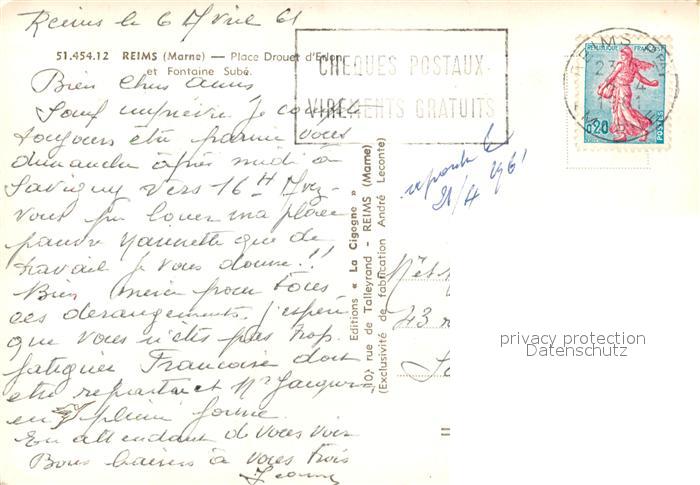 Reims le 6 Avril 61
51.454.12 REIMS (Marne) — Place Drouet d'Erlon
et Fontaine Subé.
CHEQUES POSTAUX
VIREMENTS GRATUITS
REIMS
23
4
MARNE
REPUBLIQUE FRANÇAISE
0,20
POSTES
Bien chers amis
Sauf imprévu je compte
toujours être parmi vous
dimanche après midi à
Savigny vers 16H Avez-
vous pu louer ma place
pauvre Nannette que de
travail je vous donne !!
Bien merci pour tous
ces dérangements. j'espère
que vous n'êtes pas trop
fatiguée Françoise doit
être repartie et Mr Jacques
en pleine forme.
En attendant de vous voir
Bons baisers à vous trois
Jeanne
répondu le
21/4 1961
Editions « La Cigogne »
10, rue de Talleyrand - REIMS (Marne)
(Exclusivité de fabrication André Leconte)
Mr et
43
privacy protection
Datenschutz